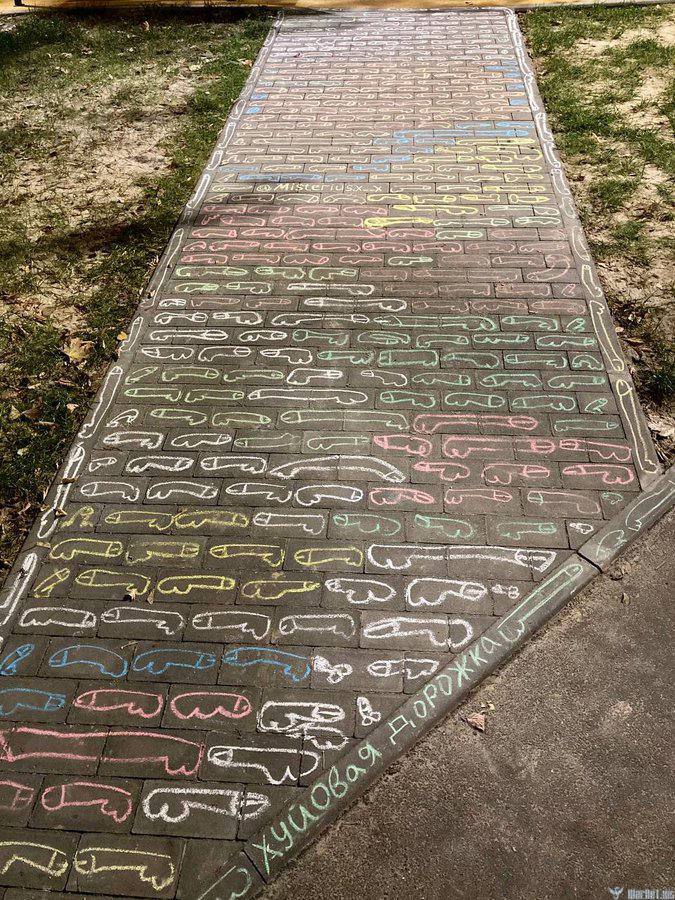 @Misteriusx_x
хуйовая дорожка
WarNet.ws